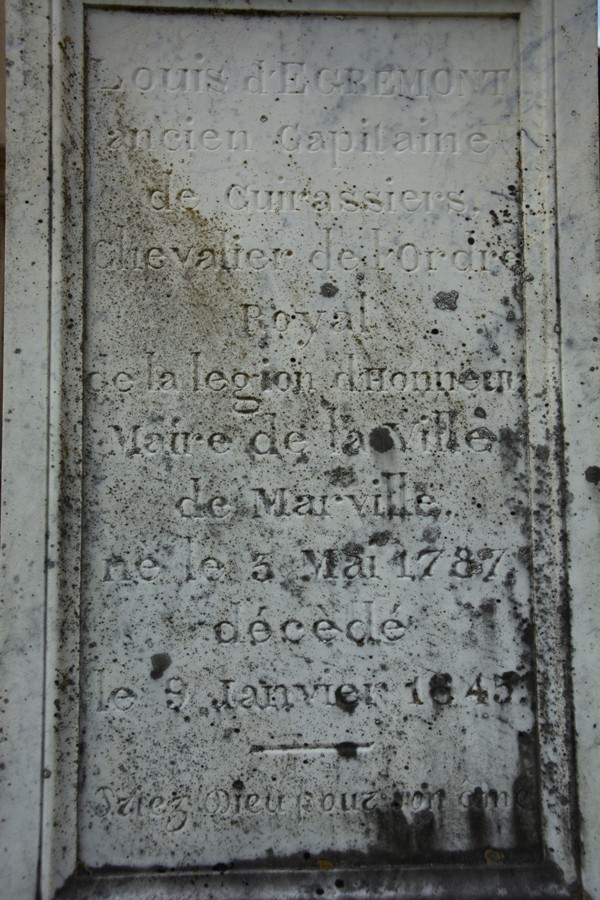 Louis d'EGREMONT
ancien Capitaine
de Cuirassiers,
Chevalier de l'Ordre
Royal
de la legion d'Honneur
Maire de la Ville
de Marville,
né le 3 Mai 1787
décèdé
le 9 Janvier 1845.
Priez Dieu pour son âme